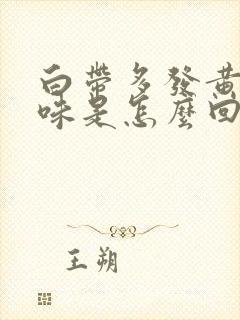 白帶多發黃
味是怎麼回
王朔